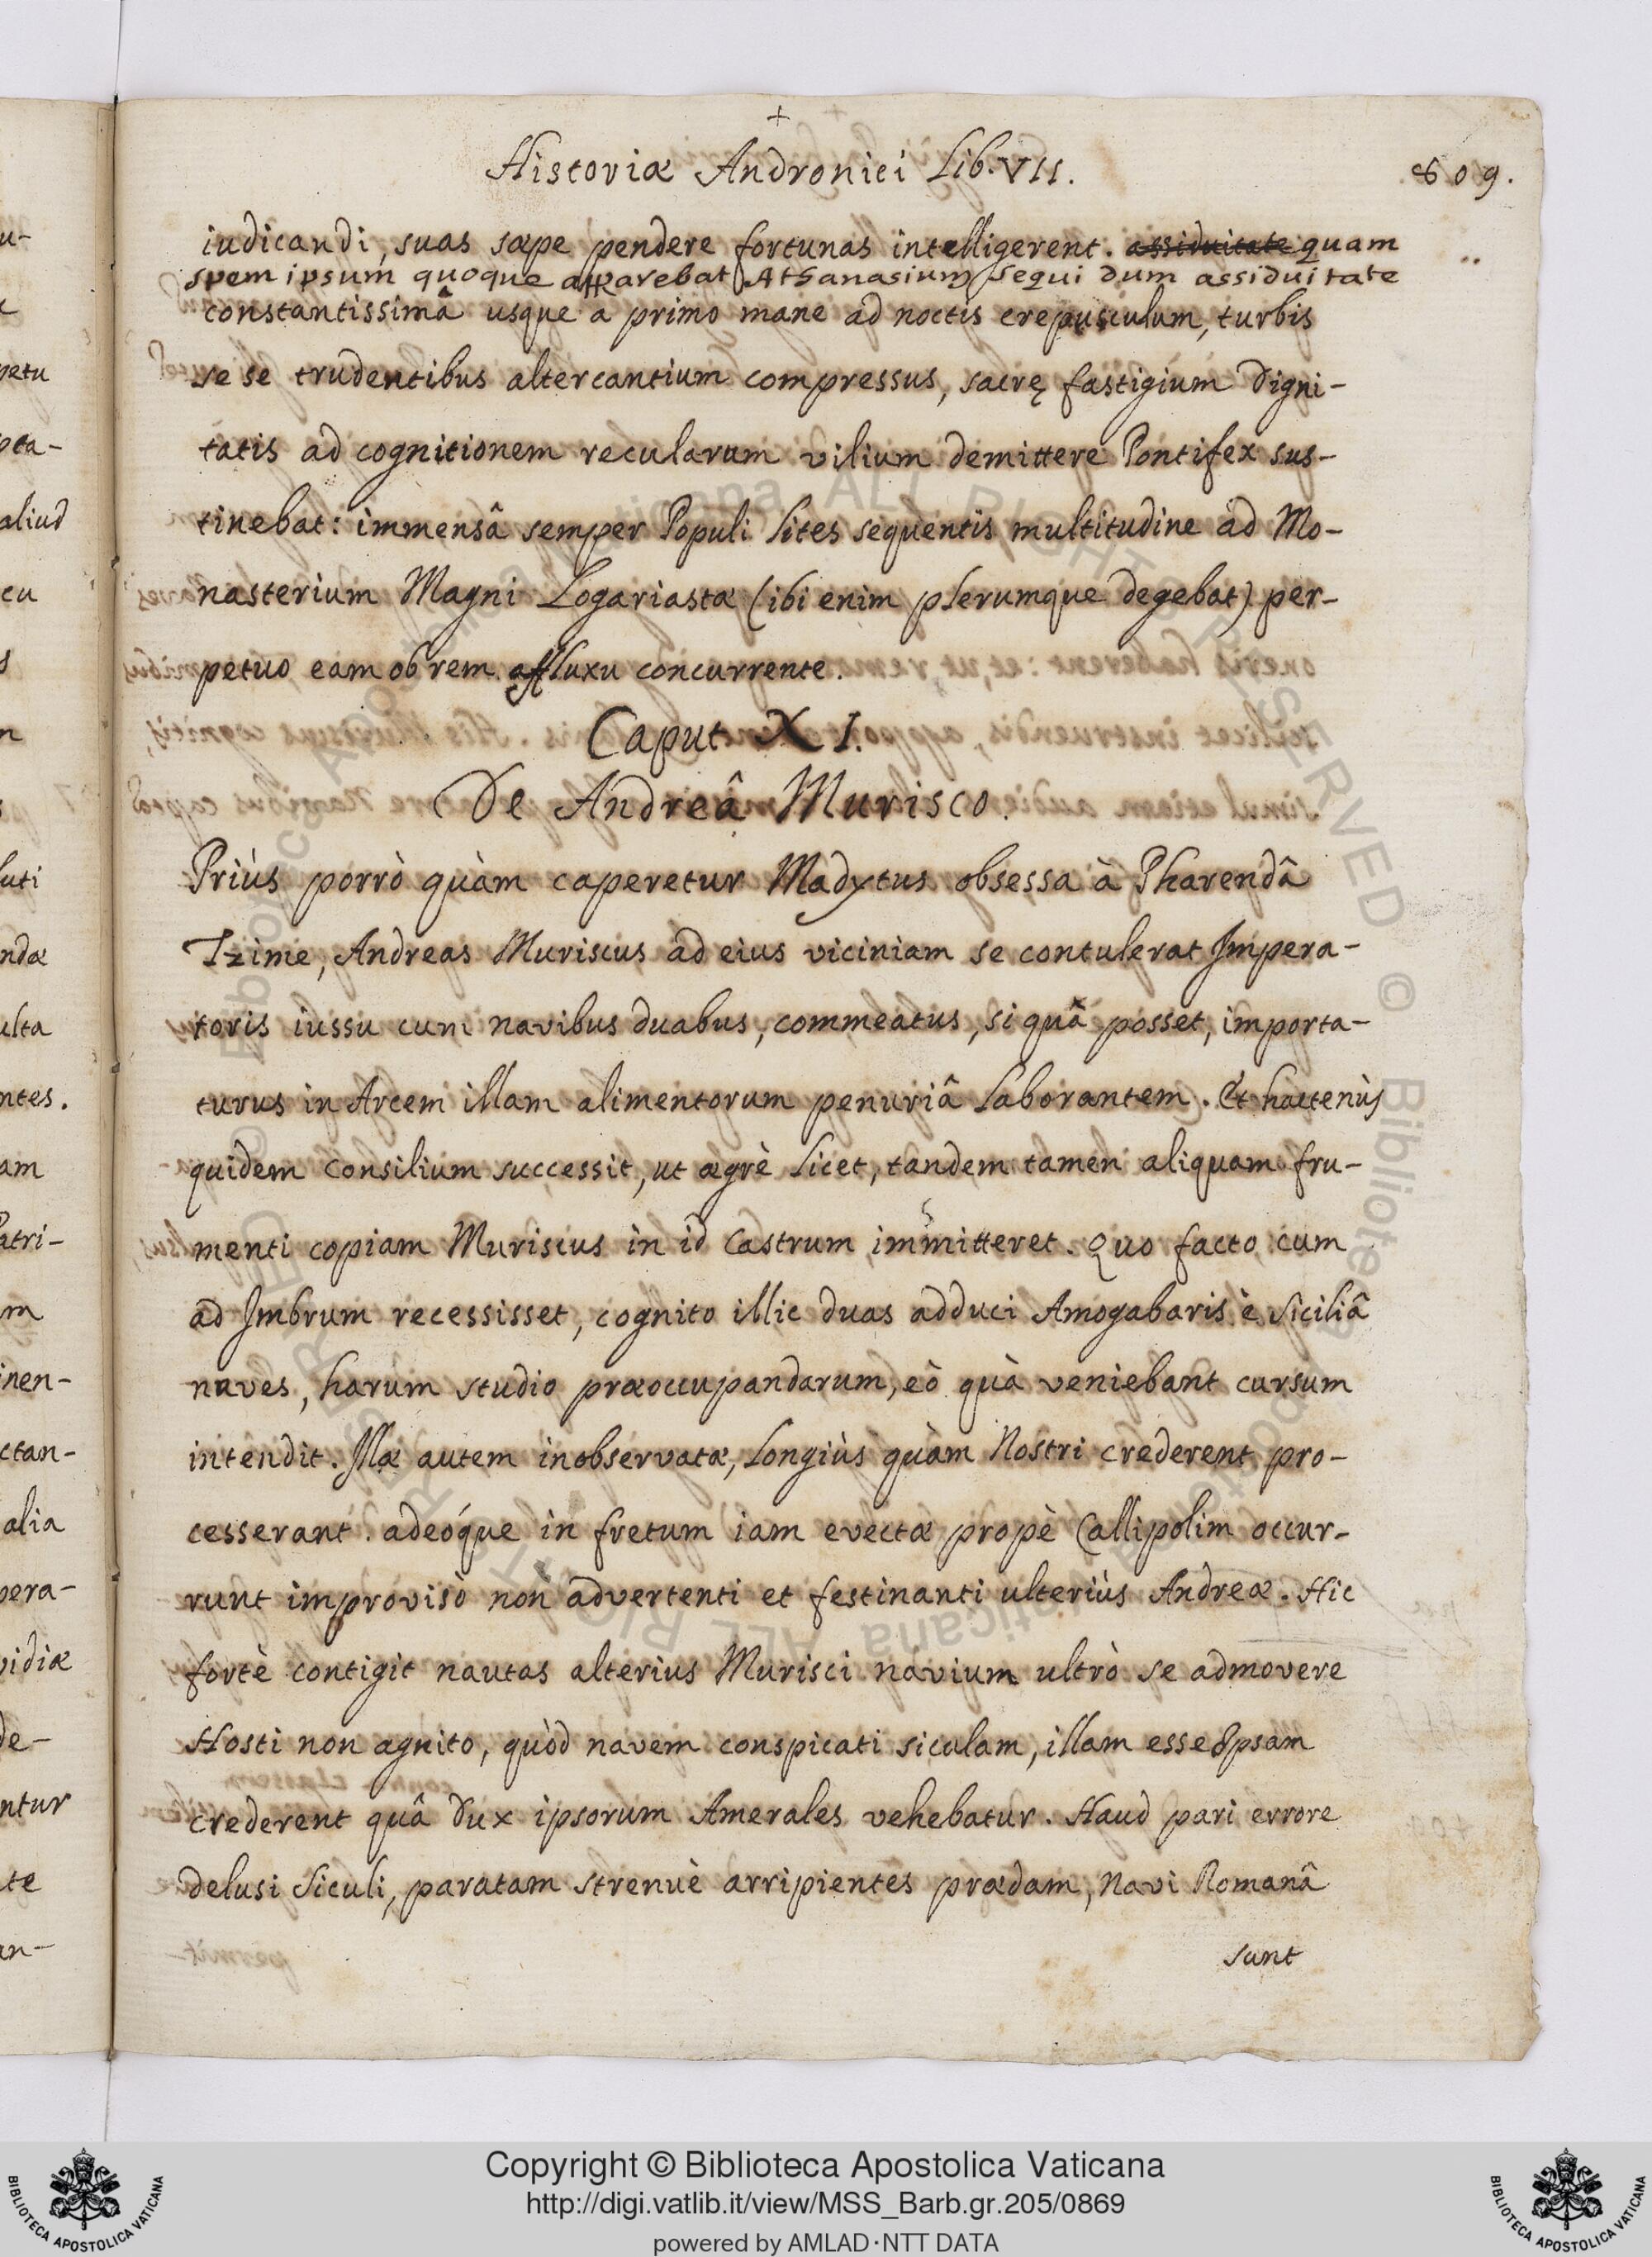 Historiæ Andronici Lib. VII. 809.
iudicandi, suas sæpe pendere fortunas intelligerent. assiduitate quam
spem ipsum quoque apparebat Athanasium sequi dum assiduitate
constantissimâ usque a primo mane ad noctis crepusculum, turbis
se se trudentibus altercantium compressus, sacrę fastigium digni-
tatis ad cognitionem recularum vilium demittere Pontifex sus-
tinebat: immensâ semper Populi lites sequentis multitudine ad Mo-
nasterium Magni Logariastæ (ibi enim plerumque degebat) per-
petuo eam ob rem affluxu concurrente.
Caput XI.
De Andreâ Murisco.
Priùs porrò quàm caperetur Madytus obsessa à Pharendâ
Tzime, Andreas Muriscus ad eius viciniam se contulerat Impera-
toris iussu cum navibus duabus, commeatus, si quâ posset, importa-
turus in Arcem illam alimentorum penuriâ laborantem. Et hactenùs
quidem consilium successit, ut ægrè licet, tandem tamen aliquam fru-
menti copiam Muriscus in id Castrum immitteret. Quo facto cum
ad Imbrum recessisset, cognito illic duas adduci Amogabaris è Siciliâ
naves, harum studio præoccupandarum, eò quà veniebant cursum
intendit. Illæ autem inobservatæ, longiùs quàm Nostri crederent pro-
cesserant. adeóque in fretum iam evectæ propè Callipolim occur-
runt improvisò non advertenti et festinanti ulteriùs Andreæ. Hic
fortè contigit nautas alterius Murisci navium ultrò se admovere
Hosti non agnito, quòd navem conspicati siculam, illam esse Ipsam
crederent quâ Dux ipsorum Amerales vehebatur. Haud pari errore
delusi Siculi, paratam strenuè arripientes prædam, Navi Romanâ
sunt
u-
petu
pta-
aliud
cu
s
n
luti
ndæ
ulta
ntes.
am
Patri-
m
inen-
ctan-
alia
pera-
vidiæ
de-
ntur
te
an-
Copyright © Biblioteca Apostolica Vaticana
http://digi.vatlib.it/view/MSS_Barb.gr.205/0869
powered by AMLAD·NTT DATA
BIBLIOTECA APOSTOLICA VATICANA
BIBLIOTECA APOSTOLICA VATICANA